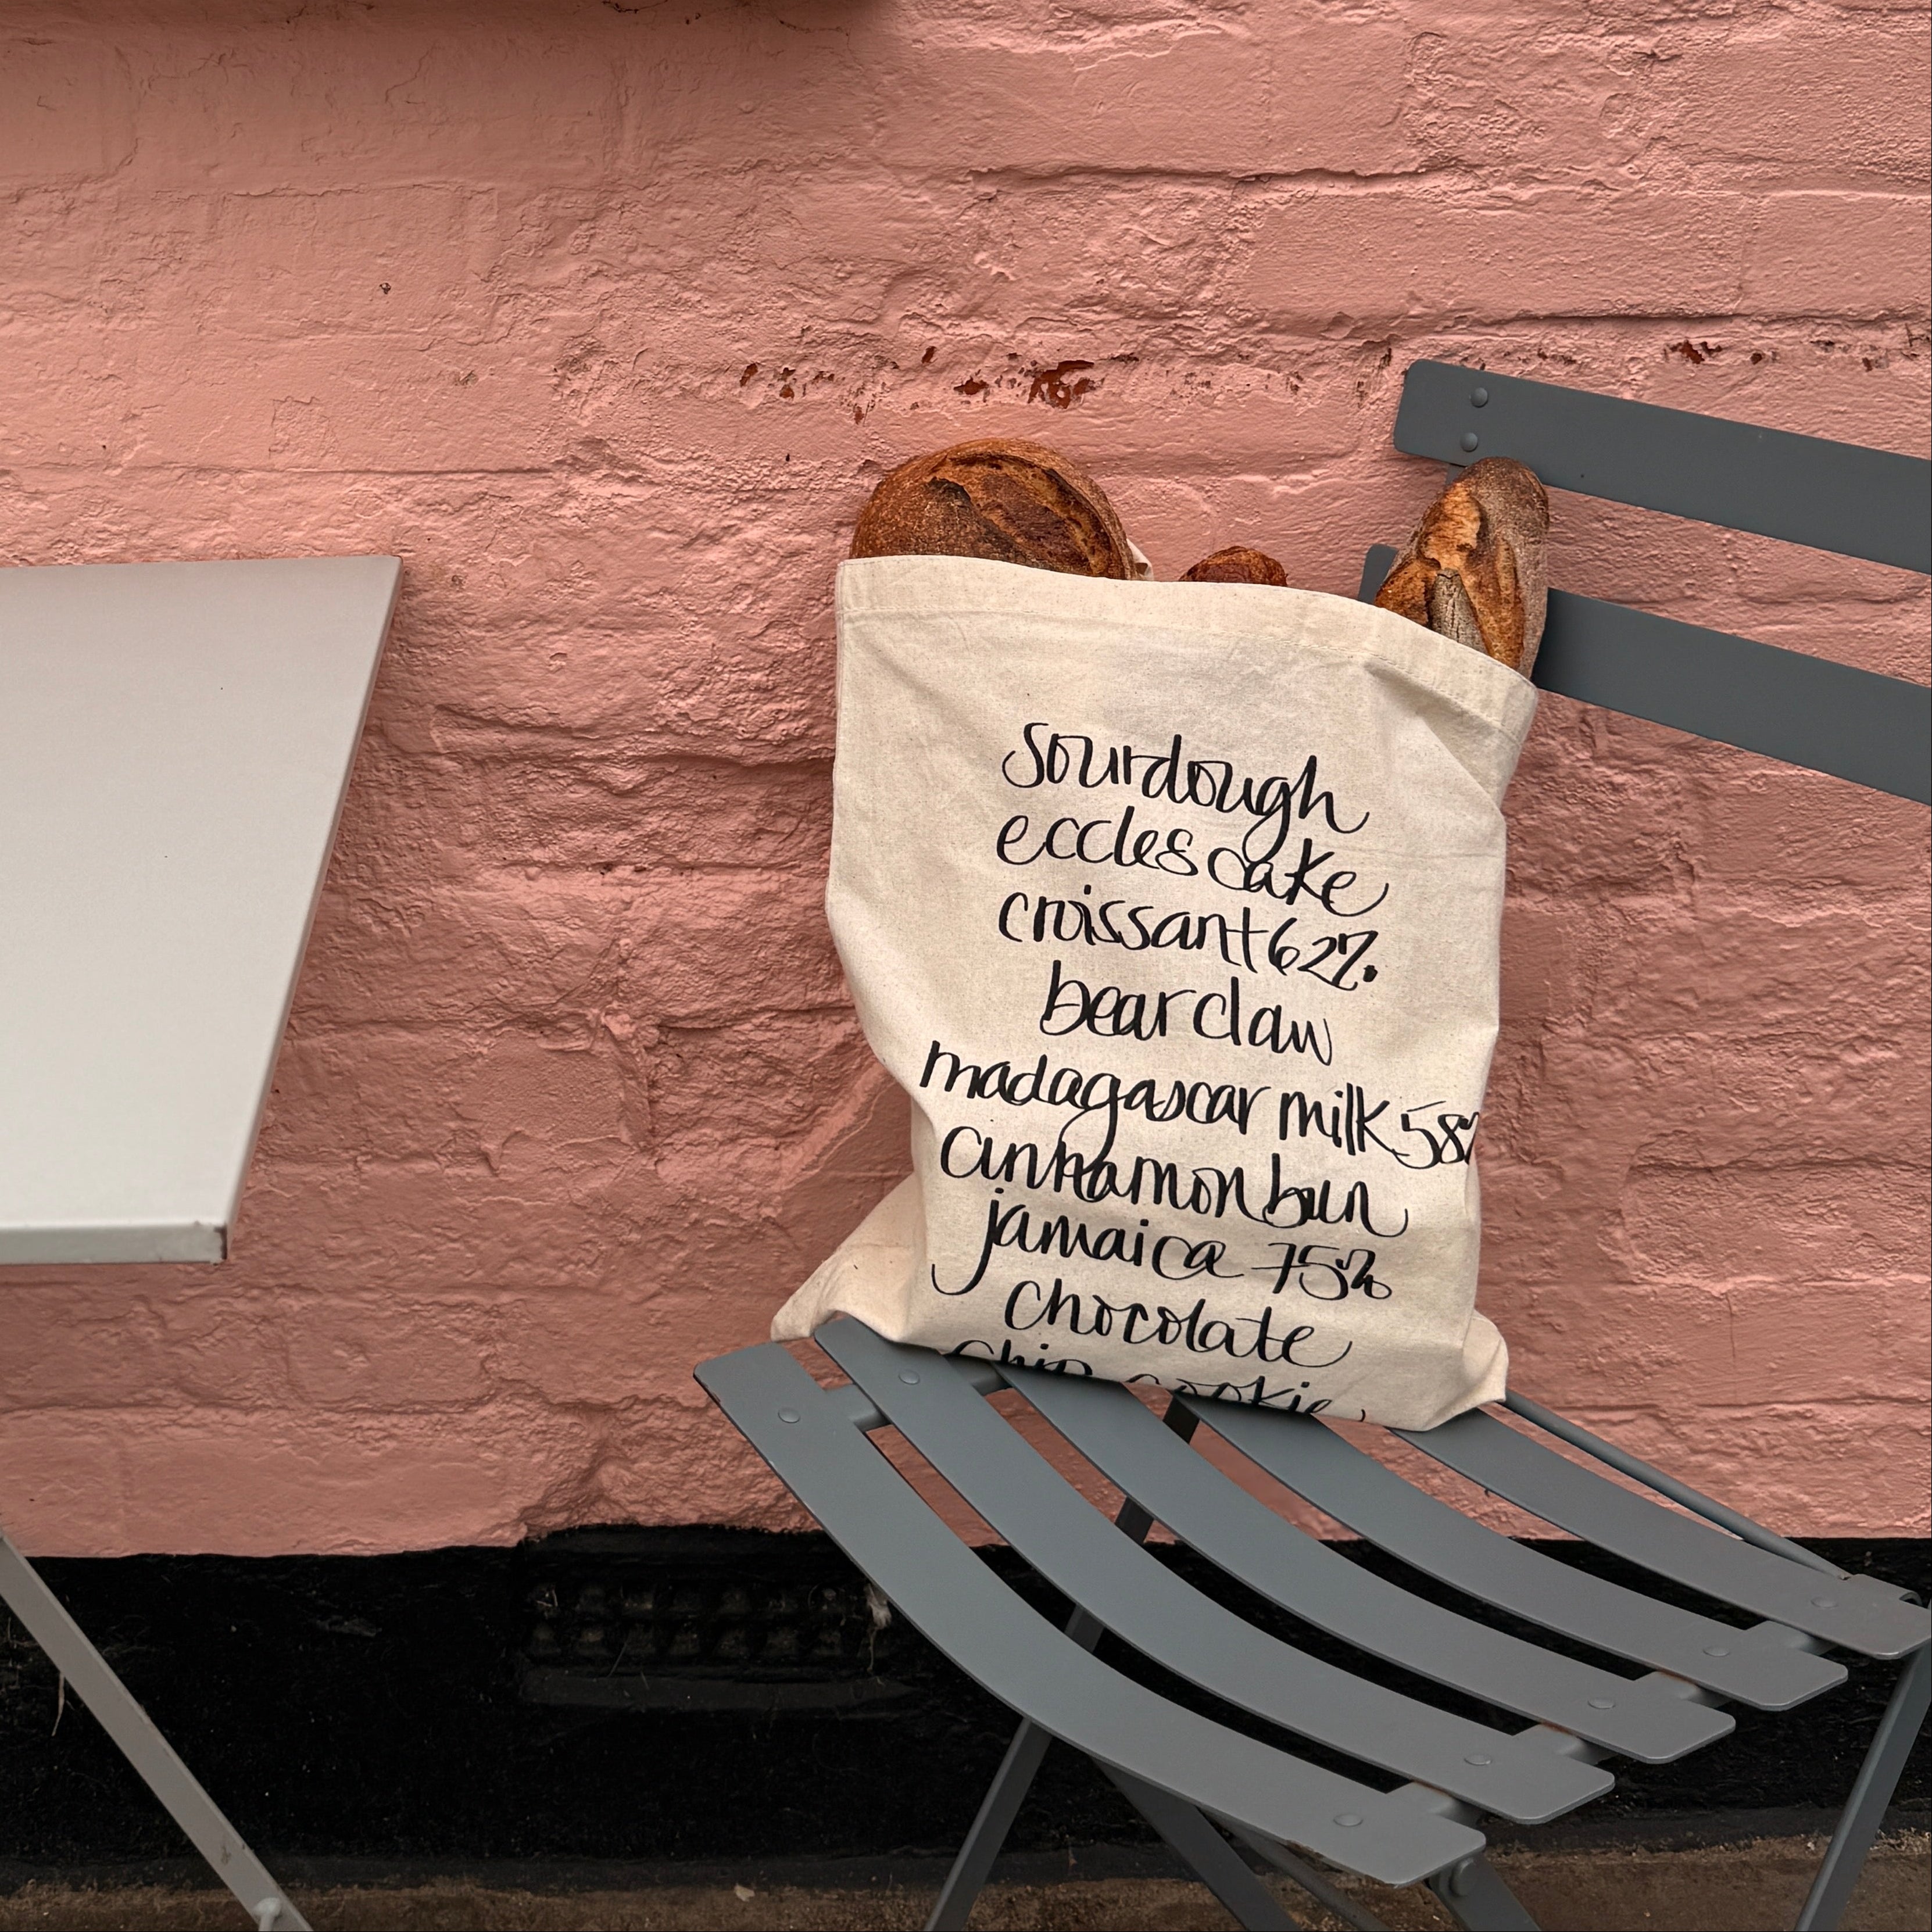 sourdough
eccles cake
croissant 62%
bear claw
madagascar milk 58%
cinnamon bun
jamaica 75%
chocolate
chip cookie